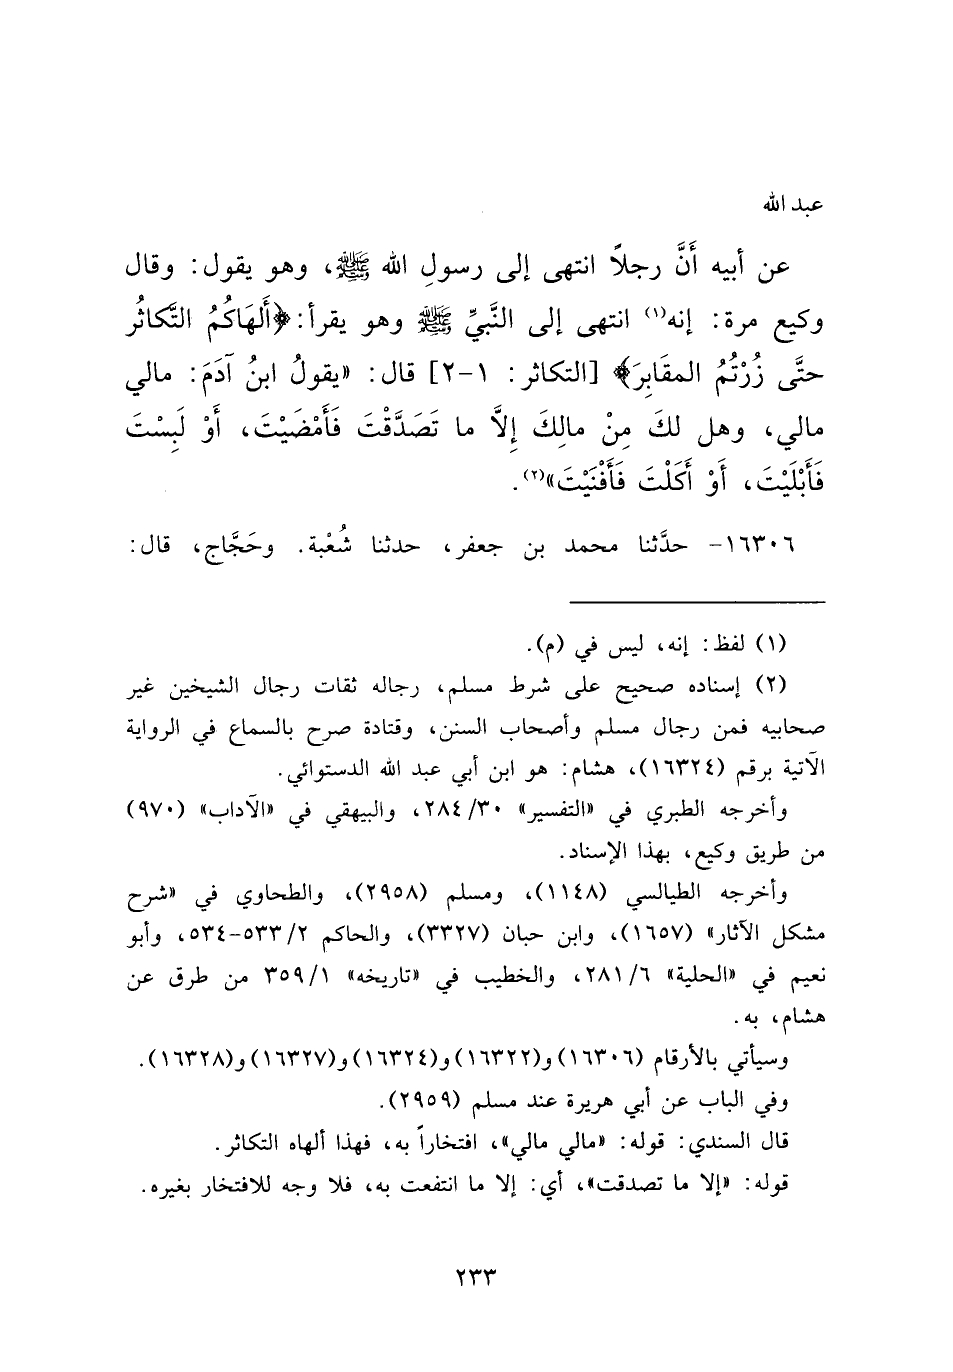 عبد الله
عن أبيه أَنَّ رجلاً انتهى إلى رسولِ الله ﷺ، وهو يقول: وقال
وكيع مرة: إنه(١) انتهى إلى النَّبيِّ ﷺ وهو يقرأ: ﴿أَلهَاكُمُ التَّكاثُر
حتَّى زُرْتُمُ المقَابِرَ﴾ [التكاثر: ١-٢] قال: «يقولُ ابنُ آدَمَ: مالي
مالي، وهل لكَ مِنْ مالِكَ إِلاَّ ما تَصَدَّقْتَ فَأَمْضَيْتَ، أَوْ لَبِسْتَ
فَأَبْلَيْتَ، أَوْ أَكَلْتَ فَأَفْنَيْتَ»(٢).
١٦٣٠٦- حدَّثنا محمد بن جعفر، حدثنا شُعْبة. وحَجَّاج، قال:
(١) لفظ: إنه، ليس في (م).
(٢) إسناده صحيح على شرط مسلم، رجاله ثقات رجال الشيخين غير
صحابيه فمن رجال مسلم وأصحاب السنن، وقتادة صرح بالسماع في الرواية
الآتية برقم (١٦٣٢٤)، هشام: هو ابن أبي عبد الله الدستوائي.
وأخرجه الطبري في «التفسير» ٢٨٤/٣٠، والبيهقي في «الآداب» (٩٧٠)
من طريق وكيع، بهذا الإسناد.
وأخرجه الطيالسي (١١٤٨)، ومسلم (٢٩٥٨)، والطحاوي في «شرح
مشكل الآثار» (١٦٥٧)، وابن حبان (٣٣٢٧)، والحاكم ٥٣٣/٢-٥٣٤، وأبو
نعيم في «الحلية» ٢٨١/٦، والخطيب في «تاريخه» ٣٥٩/١ من طرق عن
هشام، به.
وسيأتي بالأرقام (١٦٣٠٦) و(١٦٣٢٢) و(١٦٣٢٤) و(١٦٣٢٧) و(١٦٣٢٨).
وفي الباب عن أبي هريرة عند مسلم (٢٩٥٩).
قال السندي: قوله: «مالي مالي»، افتخاراً به، فهذا ألهاه التكاثر.
قوله: «إلا ما تصدقت»، أي: إلا ما انتفعت به، فلا وجه للافتخار بغيره.
٢٣٣